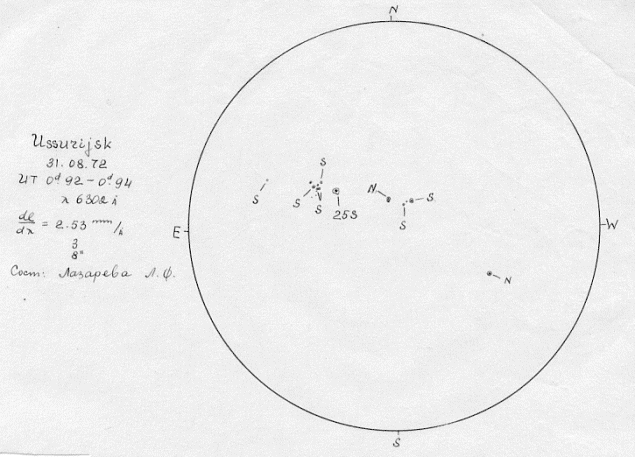 N
Ussurijsk
31.08.72
UT 0ᵈ92 – 0ᵈ94
λ 6302 Å
dl/dλ = 2.53 mm/Å
3
8ⁿ
Сост: Лазарева Л.Ф.
E
W
S
S
S
S
N
253
N
S
S
N
S